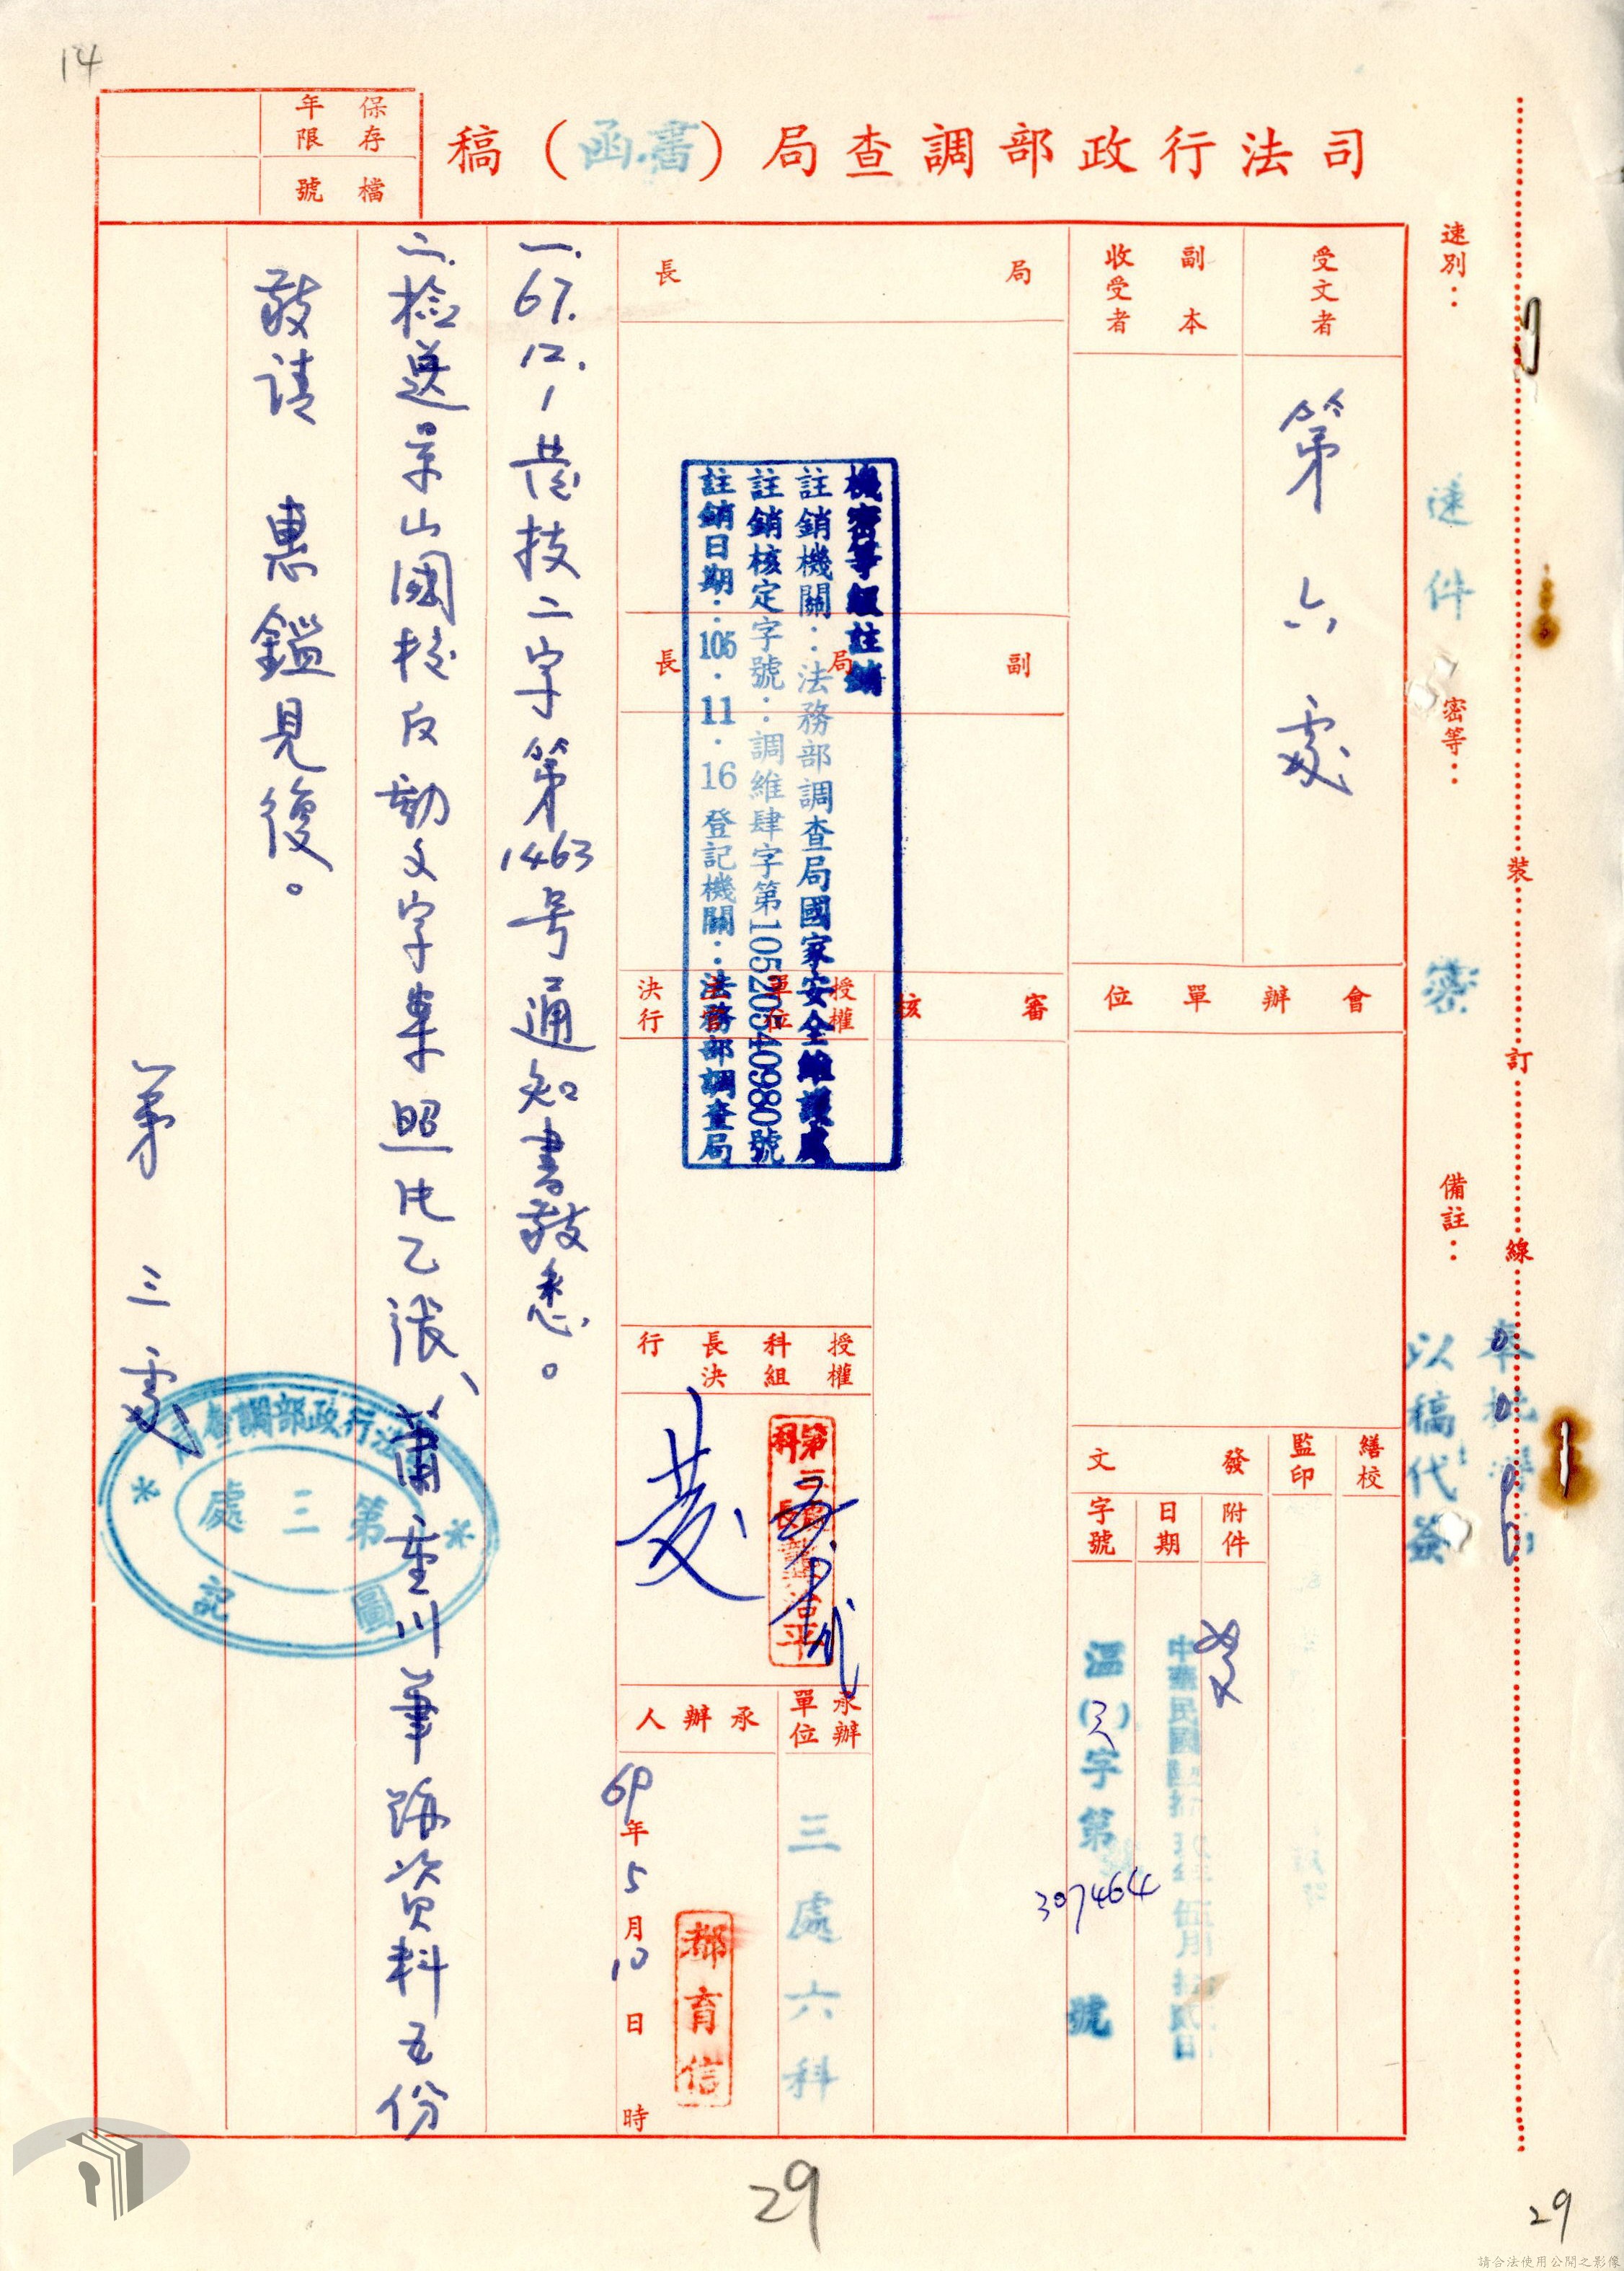 14
司法行政部調查局（書函）稿
保存年限
檔號
速別：
速件
密等：
密
備註：
以稿代簽
裝
訂
線
受文者
第六處
副本收受者
會辦單位
繕校
監印
發文
附件
日期
字號
如文
中華民國
伍月拾貳日
溫(三)字第
307464
號
局長
副局長
審核
授權單位主管決行
授權科組長決行
承辦單位
三處六科
承辦人
69年5月10日時
郝育信
機密等級註銷
註銷機關：法務部調查局國家安全維護處
註銷核定字號：調維肆字第10520540980號
註銷日期：105.11.16登記機關：法務部調查局
一.67.12.1 技二字第1463号通知書敬悉。
二.檢送景山國校反動文字案照片乙張、蕭重川筆跡資料五份
敬請 惠鑑見復。
第三處
司法行政部調查局
第三處
圖記
29
29
請合法使用公開之影像